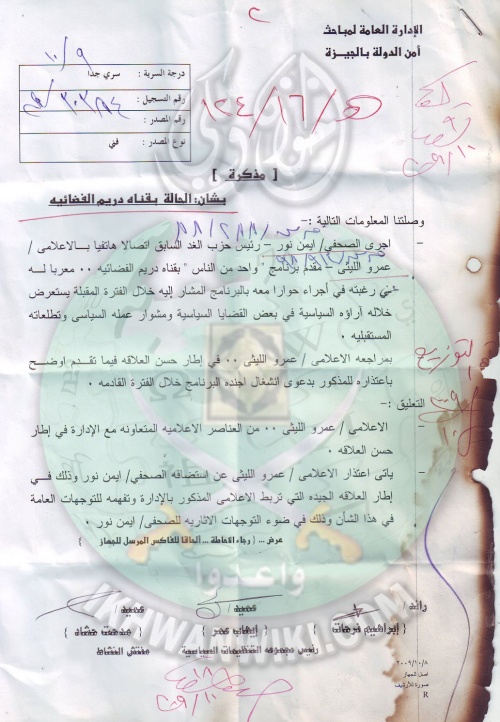 الإدارة العامة لمباحث
أمن الدولة بالجيزة
درجة السرية : سري جدا
رقم التسجيل :
رقم المصدر :
نوع المصدر : فني
١٢٤/١٦/هـ
[ مذكرة ]
بشأن: الحالة بقناه دريم الفضائيه
وصلتنا المعلومات التالية :-
- اجرى الصحفي/ ايمن نور - رئيس حزب الغد السابق اتصالا هاتفيا بالاعلامى /
عمرو الليثى - مقدم برنامج " واحد من الناس " بقناه دريم الفضائيه ٠٠ معربا له
عن رغبته في أجراء حوارا معه بالبرنامج المشار إليه خلال الفترة المقبلة يستعرض
خلاله آراؤه السياسية في بعض القضايا السياسية ومشوار عمله السياسى وتطلعاته
المستقبليه ٠
- بمراجعه الاعلامى / عمرو الليثى ٠٠ في إطار حسن العلاقه فيما تقدم اوضح
باعتذاره للمذكور بدعوى انشغال اجنده البرنامج خلال الفترة القادمه ٠
التعليق :-
- الاعلامى / عمرو الليثى ٠٠ من العناصر الاعلاميه المتعاونه مع الإدارة في إطار
حسن العلاقه ٠
- ياتى اعتذار الاعلامى / عمرو الليثى عن استضافه الصحفي/ ايمن نور وذلك في
إطار العلاقه الجيده التى تربط الاعلامى المذكور بالإدارة وتفهمه للتوجهات العامة
في هذا الشأن وذلك في ضوء التوجهات الاثاريه للصحفي/ ايمن نور ٠
عرض ... ( رجاء الاحاطة ... ألحاقا للفاكس المرسل للجهاز
رائد/ عميد/ عميد/
{ إبراهيم فرحات } { إيهاب عمر } { مدحت حشاد }
رئيس مجموعه التنظيمات السياسية مفتش النشاط
٢٠٠٩/١٠/٨
اصل للجهاز
صورة للأرشيف
R
وأعدوا
IKHWANWIKI.COM